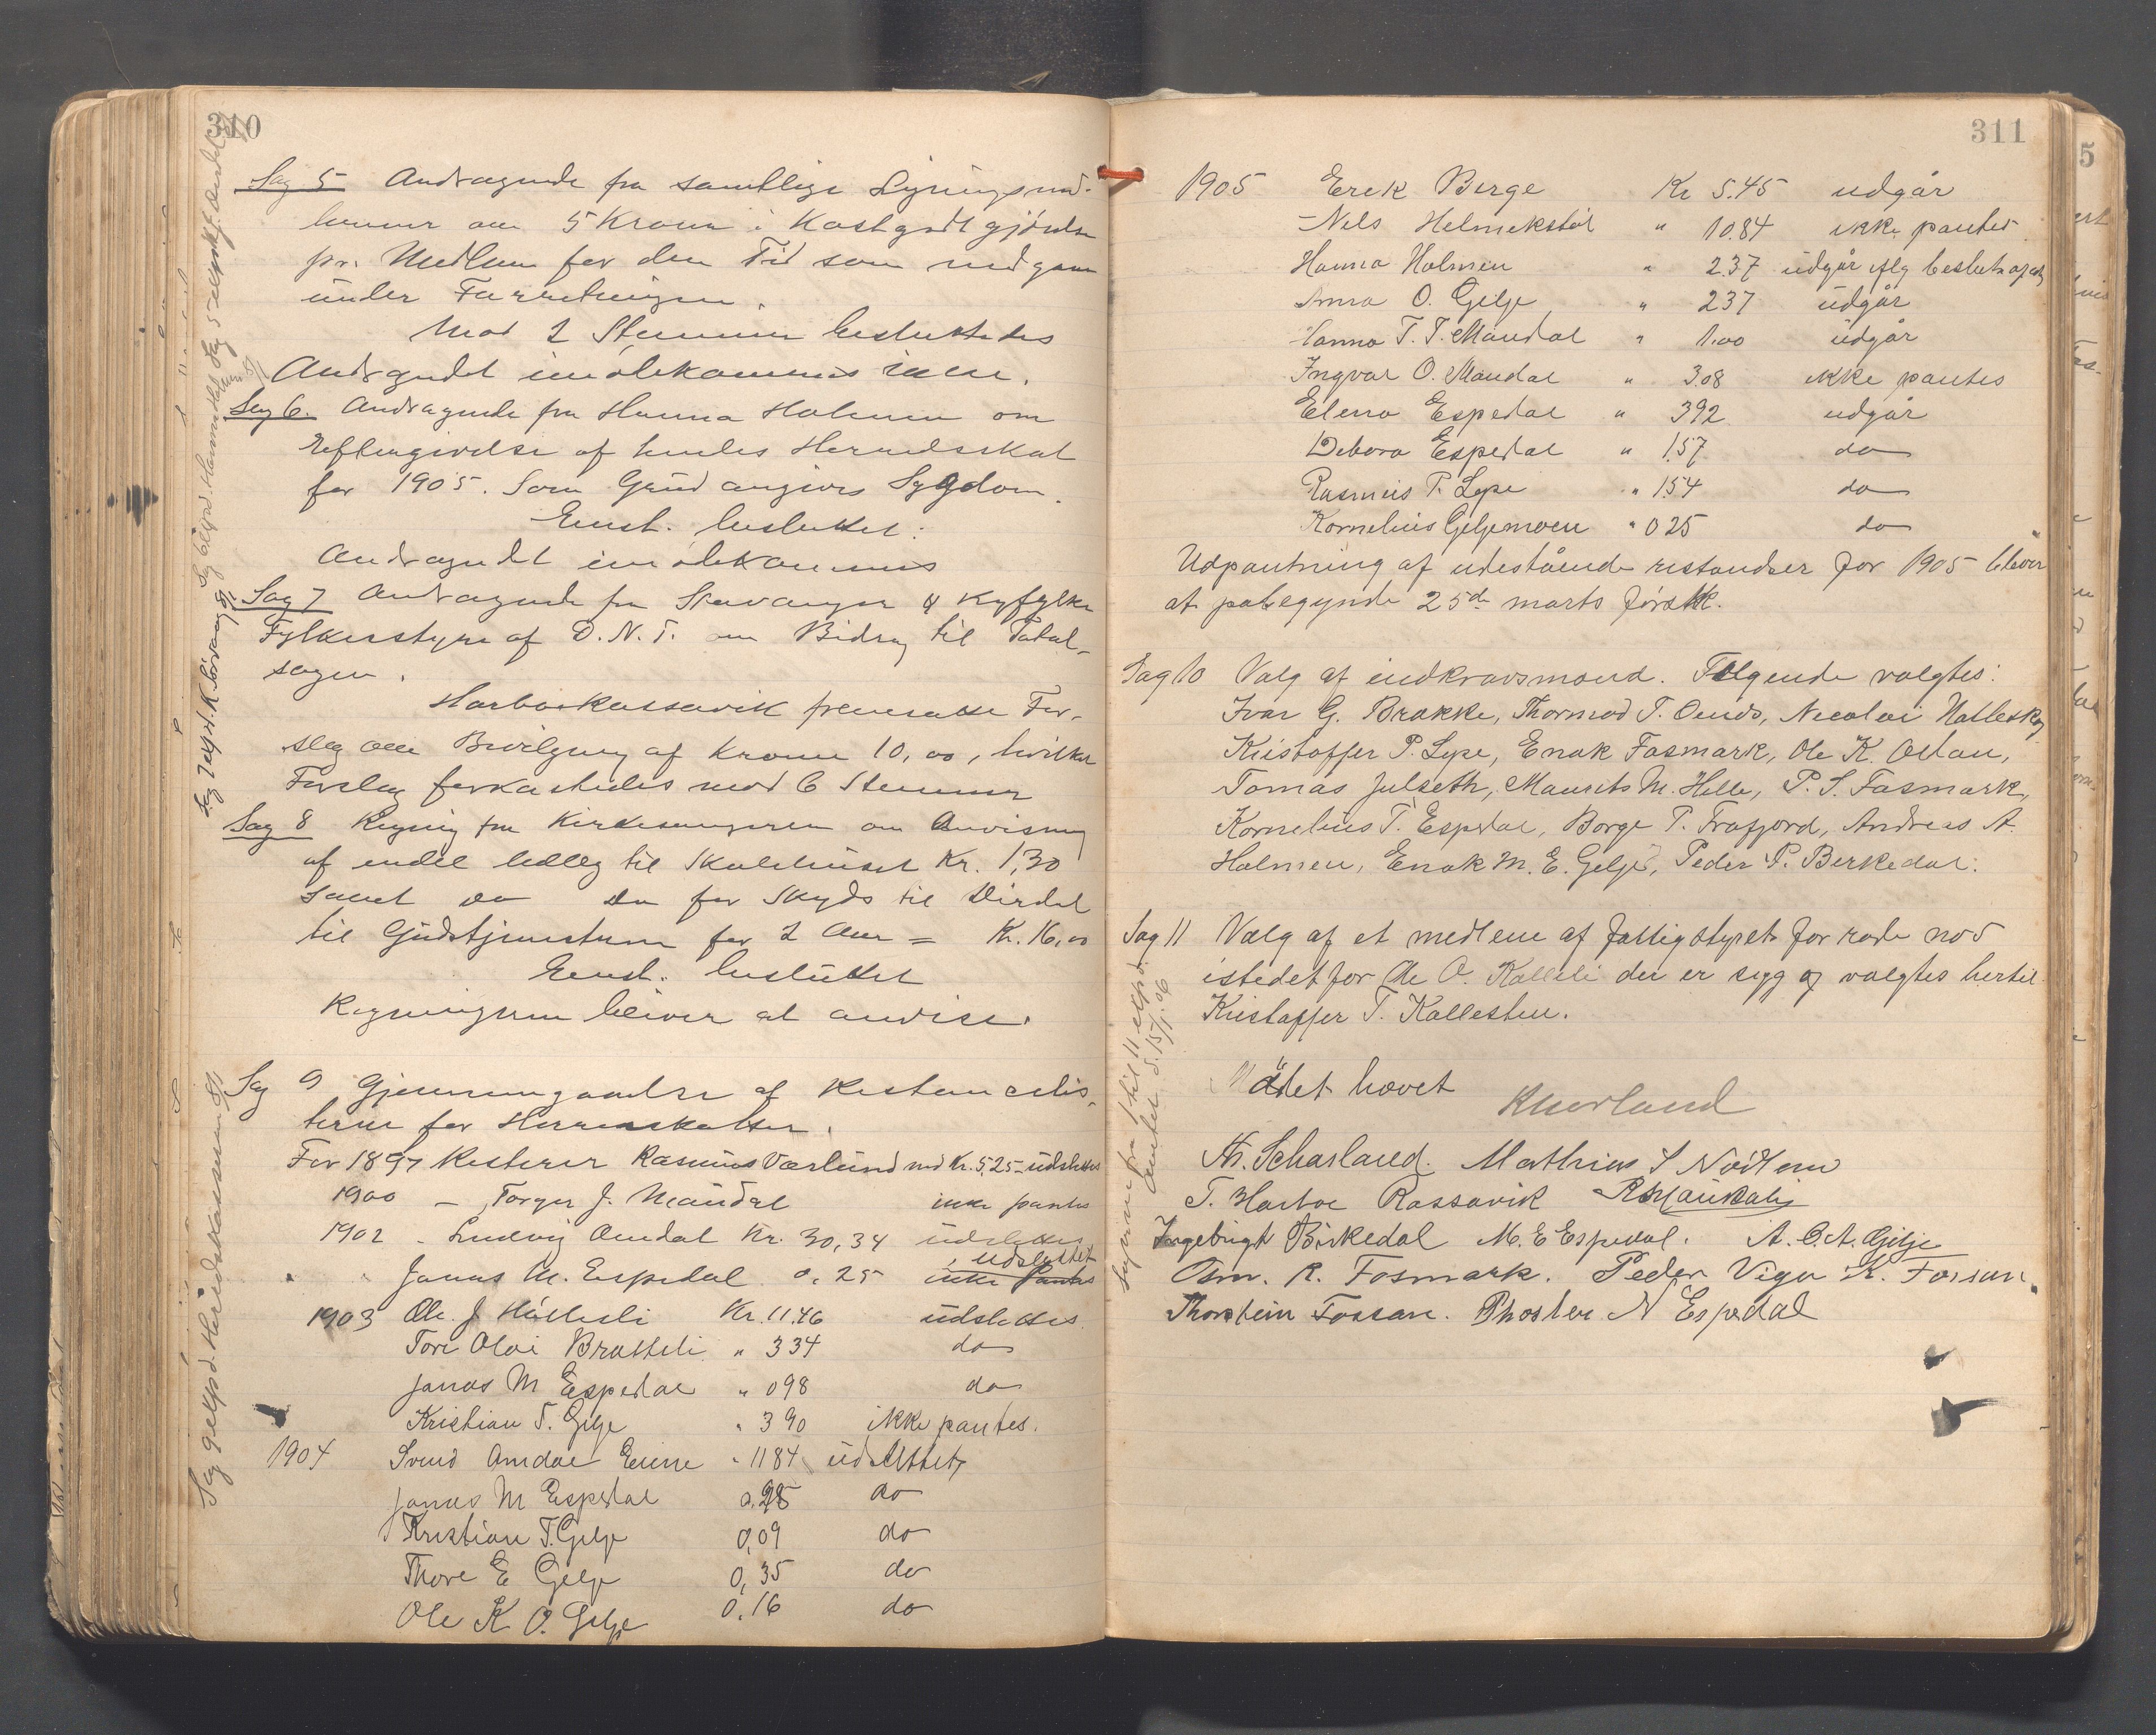 310
Sag 5 Andragende fra samtlige Ligningsmed-
lemmer om 5 Kroner i Kostgodtgjørelse
pr. Medlem for den Tid som medgaar
under Forretningen.
Mod 2 Stemmer besluttedes
Andragendet imødekommes
Sag 6. Andragende fra Hanna Holmen om
Eftergivelse af hendes Herredsskat
for 1905. Som Grund angives Sygdom.
Enst. besluttet:
Andragendet imødekommes
Sag 7 Andragende fra Stavanger & Ryfylke
Fylkesstyre af D.N.T. om Bidrag til Total-
sagen.
Harboe Rassavik fremsatte For-
slag om Bevilgning af Kroner 10,00, hvilket
Forslag forkastedes mod 6 Stemmer
Sag 8 Regning fra Kirkesangeren om Anvisning
af endel Udlæg til Skolehuset Kr. 1,30
samt do do for Skyds til Dirdal
til Gudstjenesterne for 2 Aar = Kr. 16,00
Enst. besluttet
Regningerne bliver at anvise.
Sag 9 Gjennemgaaelse af Restancelis-
terne for Herredsskatten.
For 1897 Resterer Rasmus Værland med Kr. 5,25 - udslettes
1900 - Torger J. Maudal ikke pantes
1902 - Ludvig Omdal Kr. 30,34 udslettes
udslettet
" " Jonas M. Espedal 0,25 ikke Pantes
1903 Ole J Kr. 11.46 udslettes.
Tore Olai Bratteli " 334 do
Jonas M Espedal " 098 do
Kristian T. Gilje " 390 ikke pantes.
1904 Svend Omdal Eine " 1184 udslettet
Jonas M Espedal 0,25 do
Kristian T. Gilje 0,09 do
Thore E Gilje 0,35 do
Ole K O. Gilje 0,16 do
311
1905 Erek Birge Kr 5.45 udgår
Nils Helmikstøl " 10.84 ikke pantes
Hanna Holmen " 237 udgår iflg beslut
Anna O. Gilje " 237 udgår
Hanna T. T. Maudal " 1.00 udgår
Ingvar O. Maudal " 3.08 ikke pantes
Elena Espedal " 392 udgår
Debora Espedal " 1.57 do
Rasmus P. Lype " 1.54 do
Kornelius Giljemoen " 025 do
Udpantning af udestående restandser for 1905 bliver
at påbegynde 25de marts førstk.
Sag 10 Valg af indkravsmænd. Følgende valgtes:
Ivar G. Brække, Thormod T. Oends, Necolai Hatleskog
Kristoffer P. Lype, Enok Fosmark, Ole K. Oltan,
Tomas Julseth, Maurits M. Helle, P. S. Fosmark,
Kornelius T. Espedal, Børge T. Frafjord, Andreas A.
Holmen, Enok M. E. Gilje, Peder P. Berkedal.
Sag 11 Valg af et medlem af fattigstyret for rode no 5
istedetfor Ole O. Kalleli der er syg og valgtes hertil
Kristoffer T. Kallesten.
Mødet hævet
Th. Scharland. Mathias S Nødland
T. Harboe Rassavik R Haukalid
Ingebrigt Birkedal M. E Espedal. A. E. A. Gilje
Osm. R. Fosmark. Peder Vigu K. Forsan.
Thorstein Fossan. N Espedal